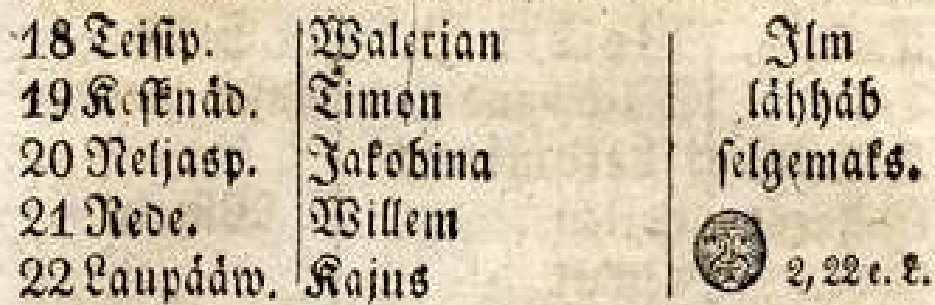 18 Teisip. Walerian Ilm
19 Keſknäd. Timon lähhäb
20 Neljasp. Jakobina ſelgemaks.
21 Rede. Willem
22 Laupääw. Kajus 2, 22 e. L.